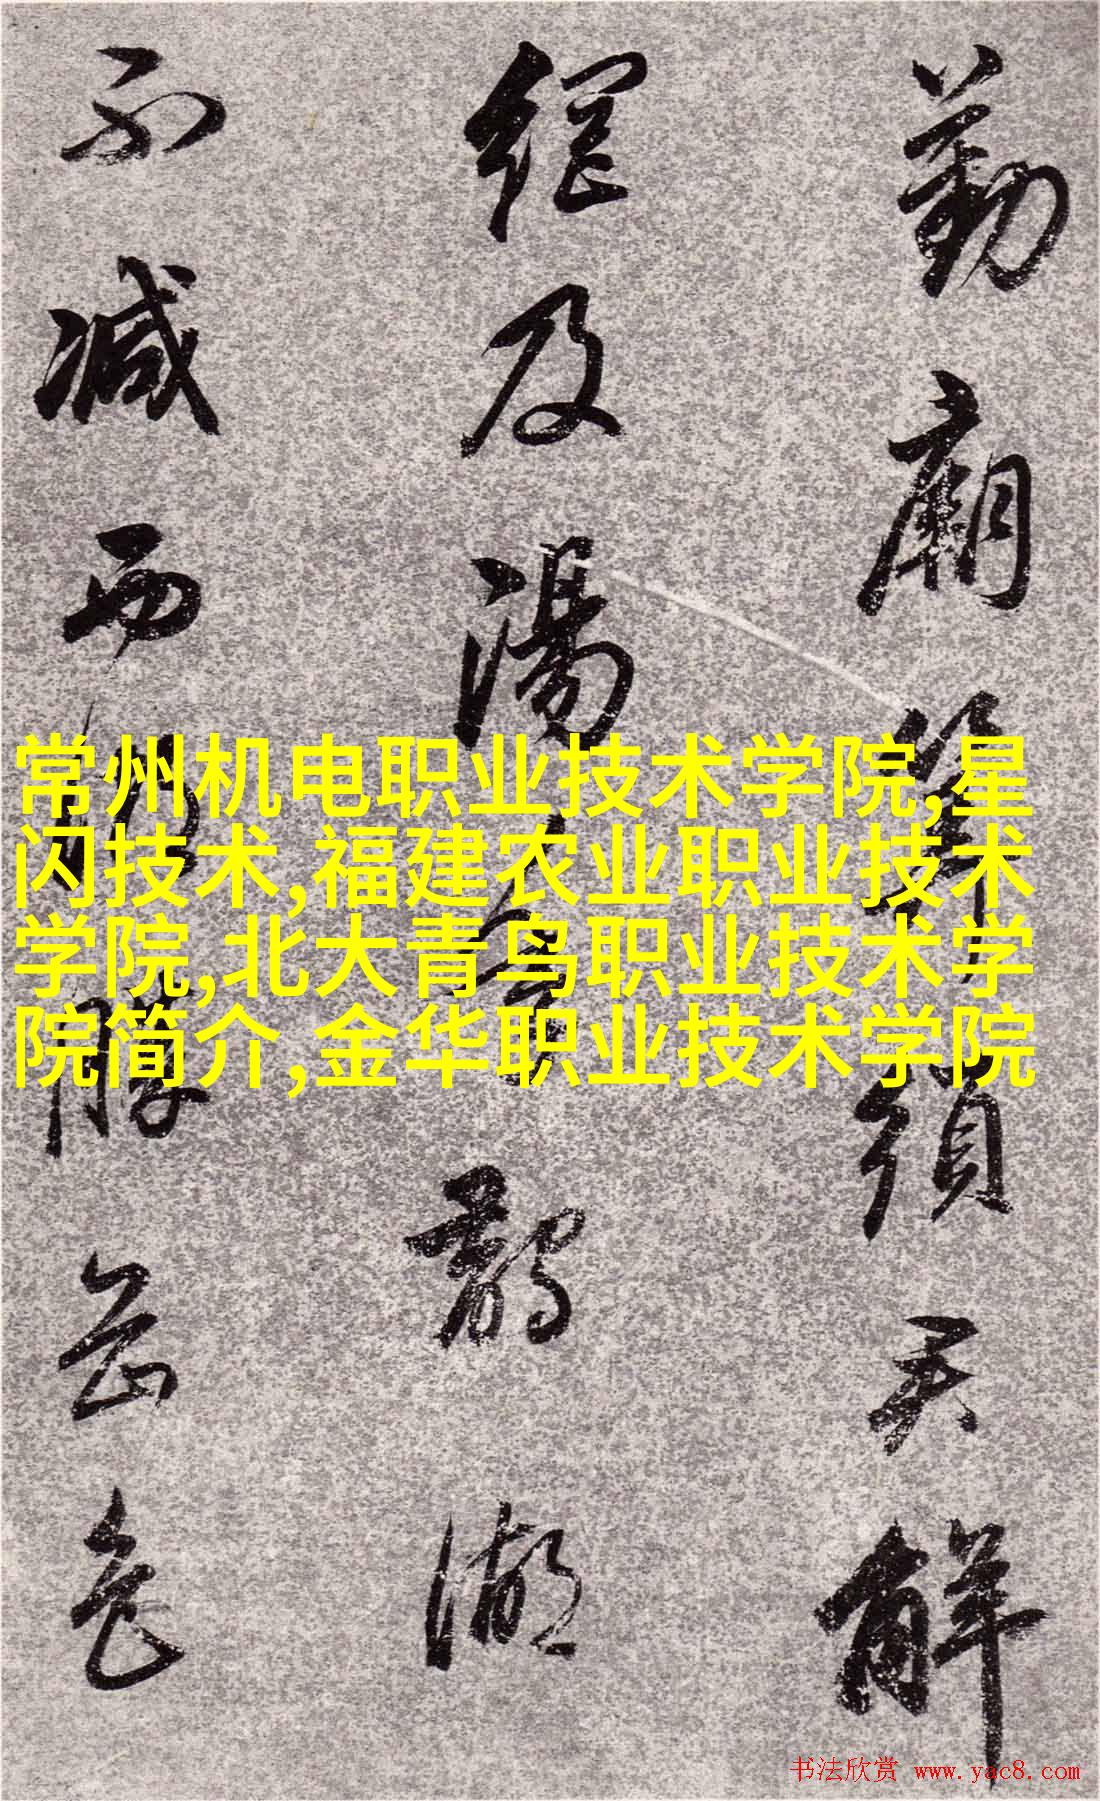 勤廟算須君解
網及湯
鵲湖
不減西湖勝無邑
常州机电职业技术学院,星
闪技术,福建农业职业技术
学院,北大青鸟职业技术学
院简介,金华职业技术学院
书法欣赏 www.yac8.com